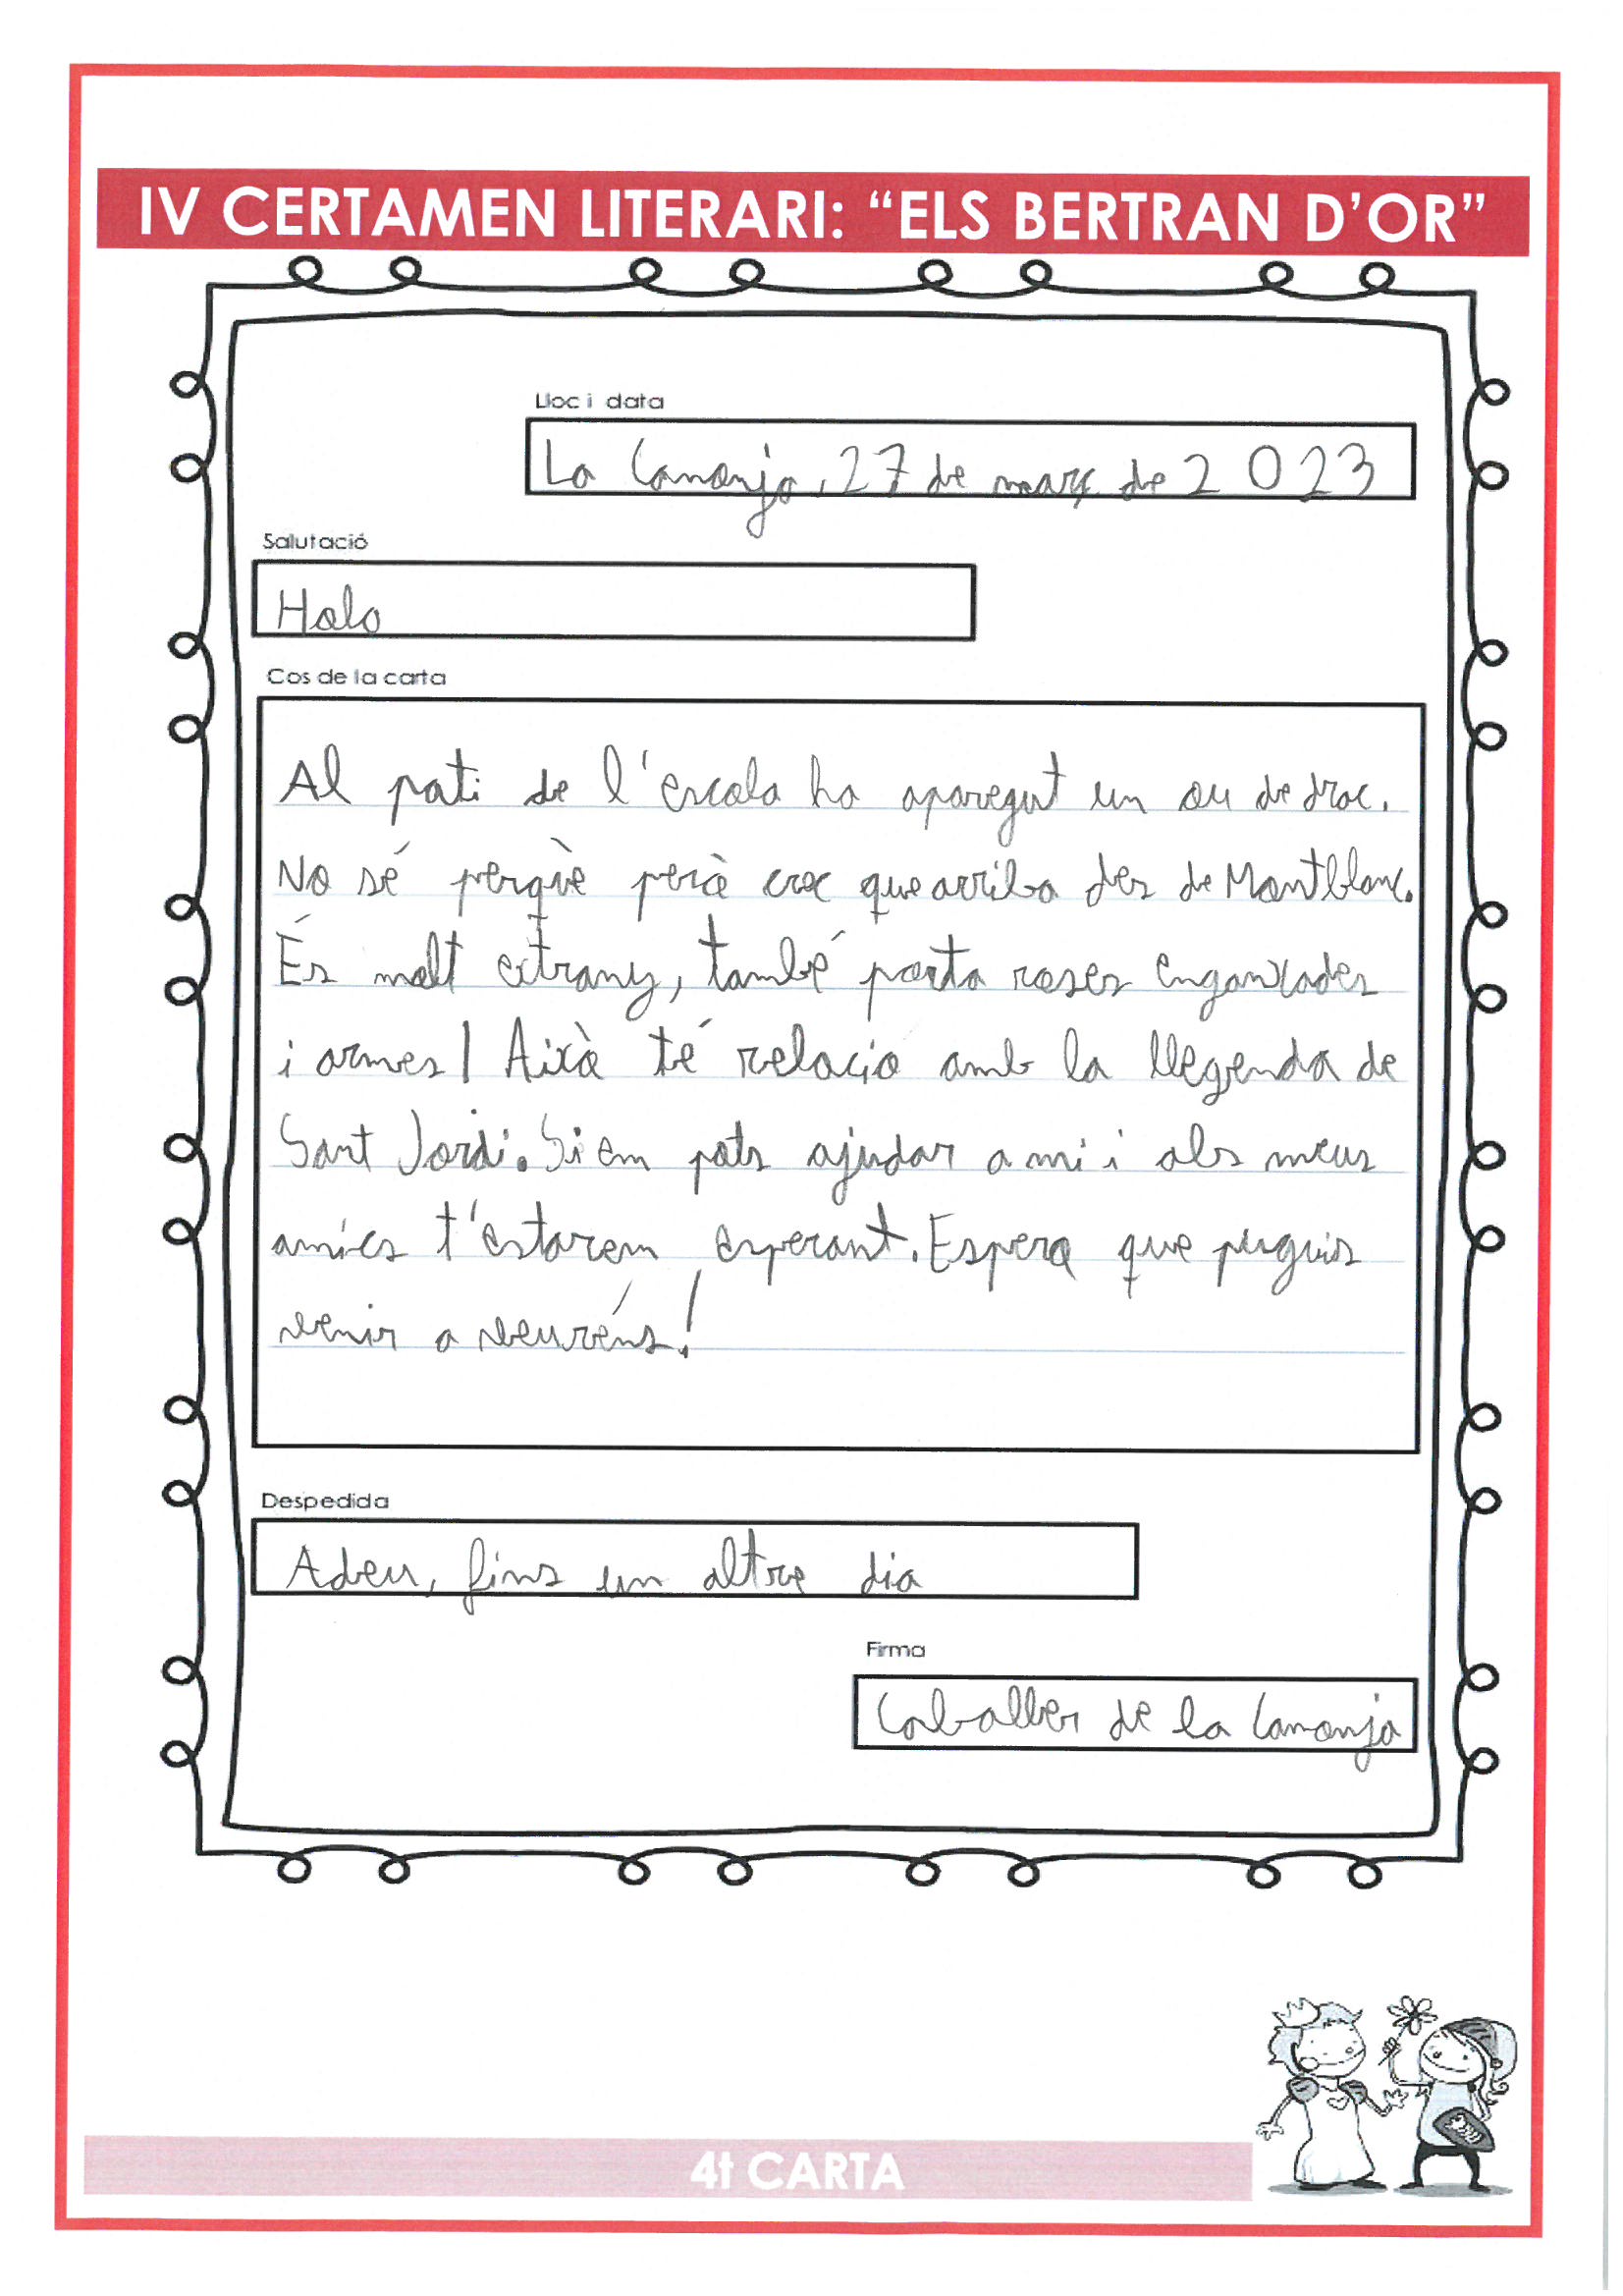 IV CERTAMEN LITERARI: “ELS BERTRAN D’OR”
Lloc i data
La Canonja, 27 de març de 2023
Salutació
Hola
Cos de la carta
Al pati de l'escola ha aparegut un ou de drac.
No sé perquè però crec que arriba des de Montblanc.
És molt extrany, també porta roses enganxades
i armes! Això té relació amb la llegenda de
Sant Jordi. Si em pots ajudar a mi i als meus
amics t'estarem esperant. Espero que puguis
venir a veuréns!
Despedida
Adeu, fins un altre dia
Firma
Caballer de la Canonja
4t CARTA